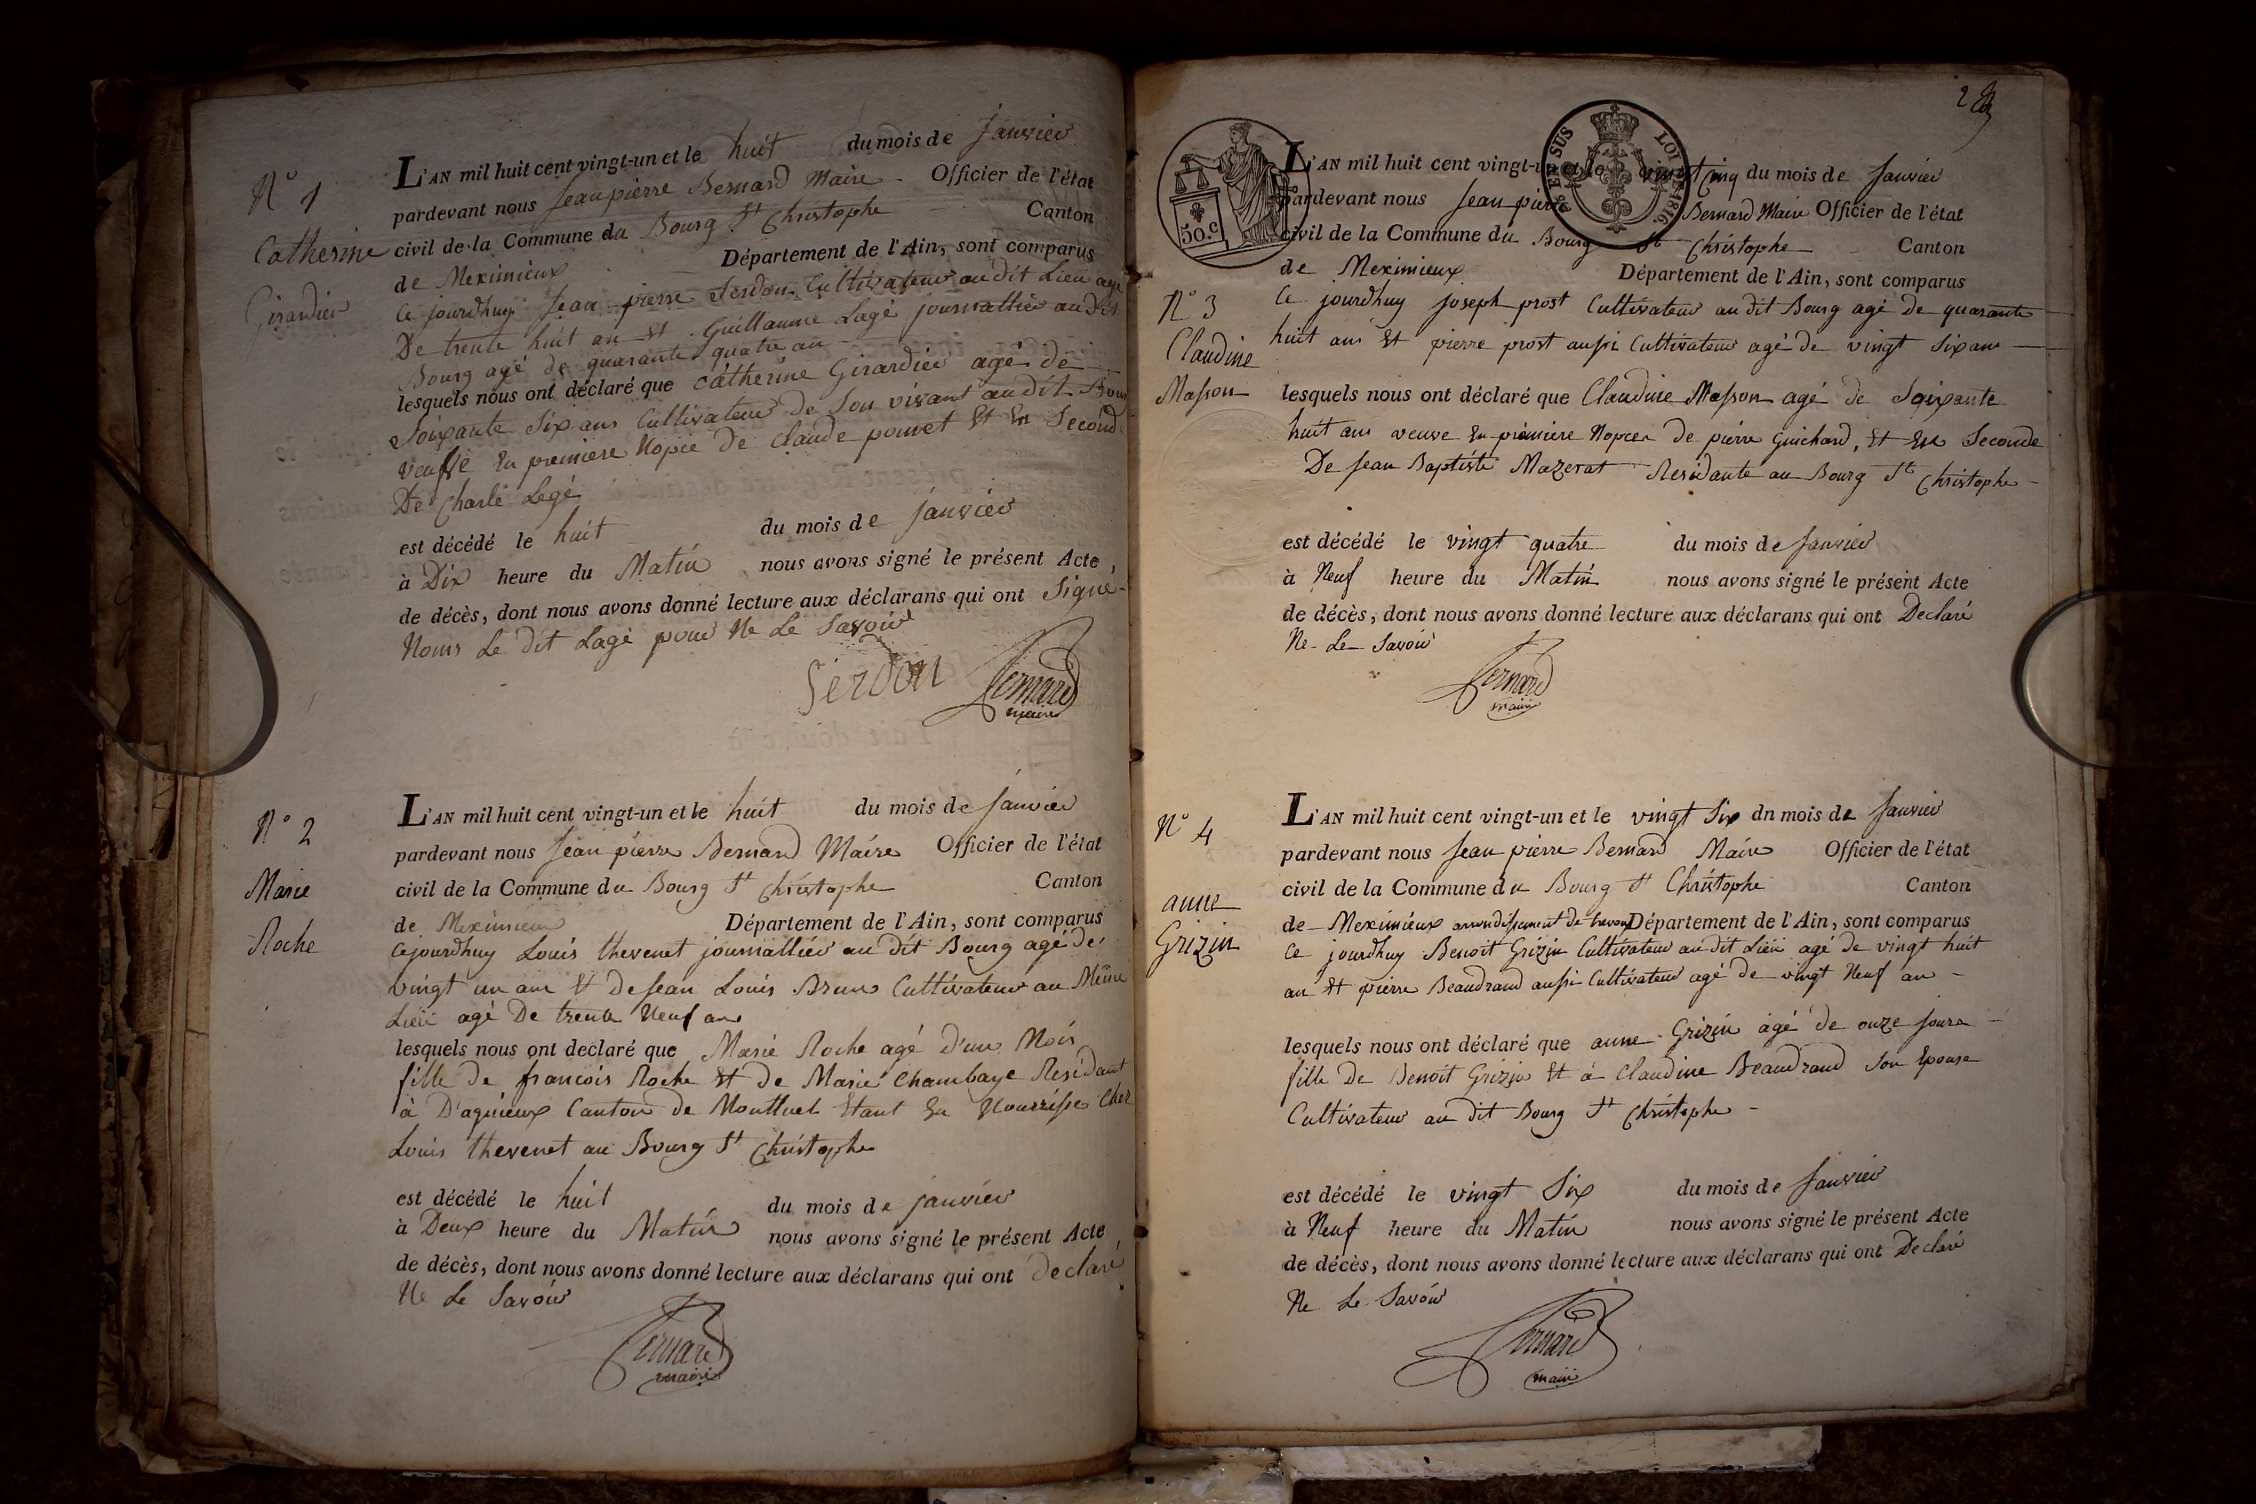 N° 1
Catherine
Girardier
L'AN mil huit cent vingt-un et le huit du mois de Janvier
pardevant nous Jean pierre Bernard Maire Officier de l'état
civil de la Commune du Bourg St Christophe Canton
de Meximieux Département de l'Ain, sont comparus
Ce jourdhuy Jean pierre Serdon Cultivateur au dit Lieu agé
De trente huit an Et Guillaume Lagé journallier au dit
Bourg agé de quarante quatre an
lesquels nous ont déclaré que Cathérine Girardier agé de
Soixante Six ans Cultivateur de Son vivant au dit Bourg
veufve En premiere Nopce de Claude pouvet Et En Second
De Charle Legé
est décédé le huit du mois de janvier
à Dix heure du Matin nous avons signé le présent Acte,
de décès, dont nous avons donné lecture aux déclarans qui ont Signé
Nous Le dit Lagé pour Ne Le Savoir
Serdon Bernard
maire
N° 2
Marie
Roche
L'AN mil huit cent vingt-un et le huit du mois de Janvier
pardevant nous Jean pierre Bernard Maire Officier de l'état
civil de la Commune du Bourg St Christophe Canton
de Meximieux Département de l'Ain, sont comparus
Cejourdhuy Louis thevenet journallier au dit Bourg agé de
vingt un an Et De Jean Louis Brun Cultivateur au Même
Lieu agé De trente Neuf an
lesquels nous ont declaré que Marie Roche agé d'un Mois
fille de francois Roche Et de Marie Chambaye Residant
à D'agnieux Canton de Montluel Etant En Nourrisse Chez
Louis thevenet au Bourg St Christophe
est décédé le huit du mois de janvier
à Deux heure du Matin nous avons signé le présent Acte
de décès, dont nous avons donné lecture aux déclarans qui ont declaré
Ne Le Savoir
Bernard
maire
2
50.c
LOI DE 1816.
L'AN mil huit cent vingt-un et le vingt cinq du mois de Janvier
pardevant nous Jean pierre Bernard Maire Officier de l'état
civil de la Commune du Bourg St Christophe Canton
de Meximieux Département de l'Ain, sont comparus
N° 3
Claudine
Masson
Ce jourdhuy joseph prost Cultivateur au dit Bourg agé de quarante
huit ans Et pierre prost aussi Cultivateur agé de vingt Six ans
lesquels nous ont déclaré que Claudine Masson agé de Soixante
huit ans veuve En première Nopces de pierre Guichard, Et En Seconde
De Jean Baptiste Mazerat Residante au Bourg St Christophe
est décédé le vingt quatre du mois de Janvier
à Neuf heure du Matin nous avons signé le présent Acte
de décès, dont nous avons donné lecture aux déclarans qui ont Declaré
Ne Le Savoir
Bernard
maire
N° 4
anne
Grizin
L'AN mil huit cent vingt-un et le vingt Six dn mois de Janvier
pardevant nous Jean pierre Bernard Maire Officier de l'état
civil de la Commune du Bourg St Christophe Canton
de Meximieux arrondissement de trevoux Département de l'Ain, sont comparus
Ce jourdhuy Benoit Grizin Cultivateur au dit Lieu agé de vingt huit
an Et pierre Beaudrand aussi Cultivateur agé de vingt Neuf an
lesquels nous ont déclaré que anne Grizin agé de onze Jours
fille De Benoit Grizin Et á Claudine Beaudrand Son Epouse
Cultivateur au dit Bourg St Christophe
est décédé le vingt Six du mois de Janvier
à Neuf heure du Matin nous avons signé le présent Acte
de décès, dont nous avons donné lecture aux déclarans qui ont Declaré
Ne Le Savoir
Bernard
maire